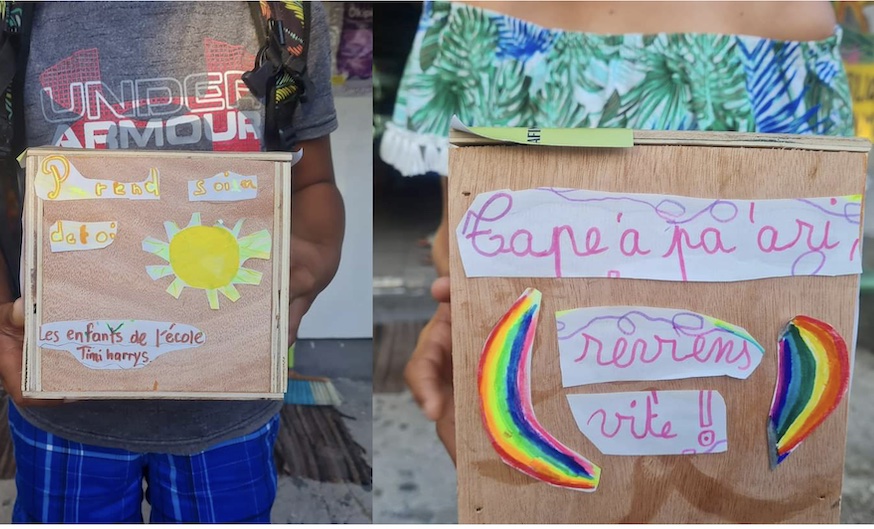 UNDER
ARMOUR
Prend soin
de toi
Les enfants de l'école
Timi harrys.
AFI
Tape'a pa'ari,
reviens
vite !